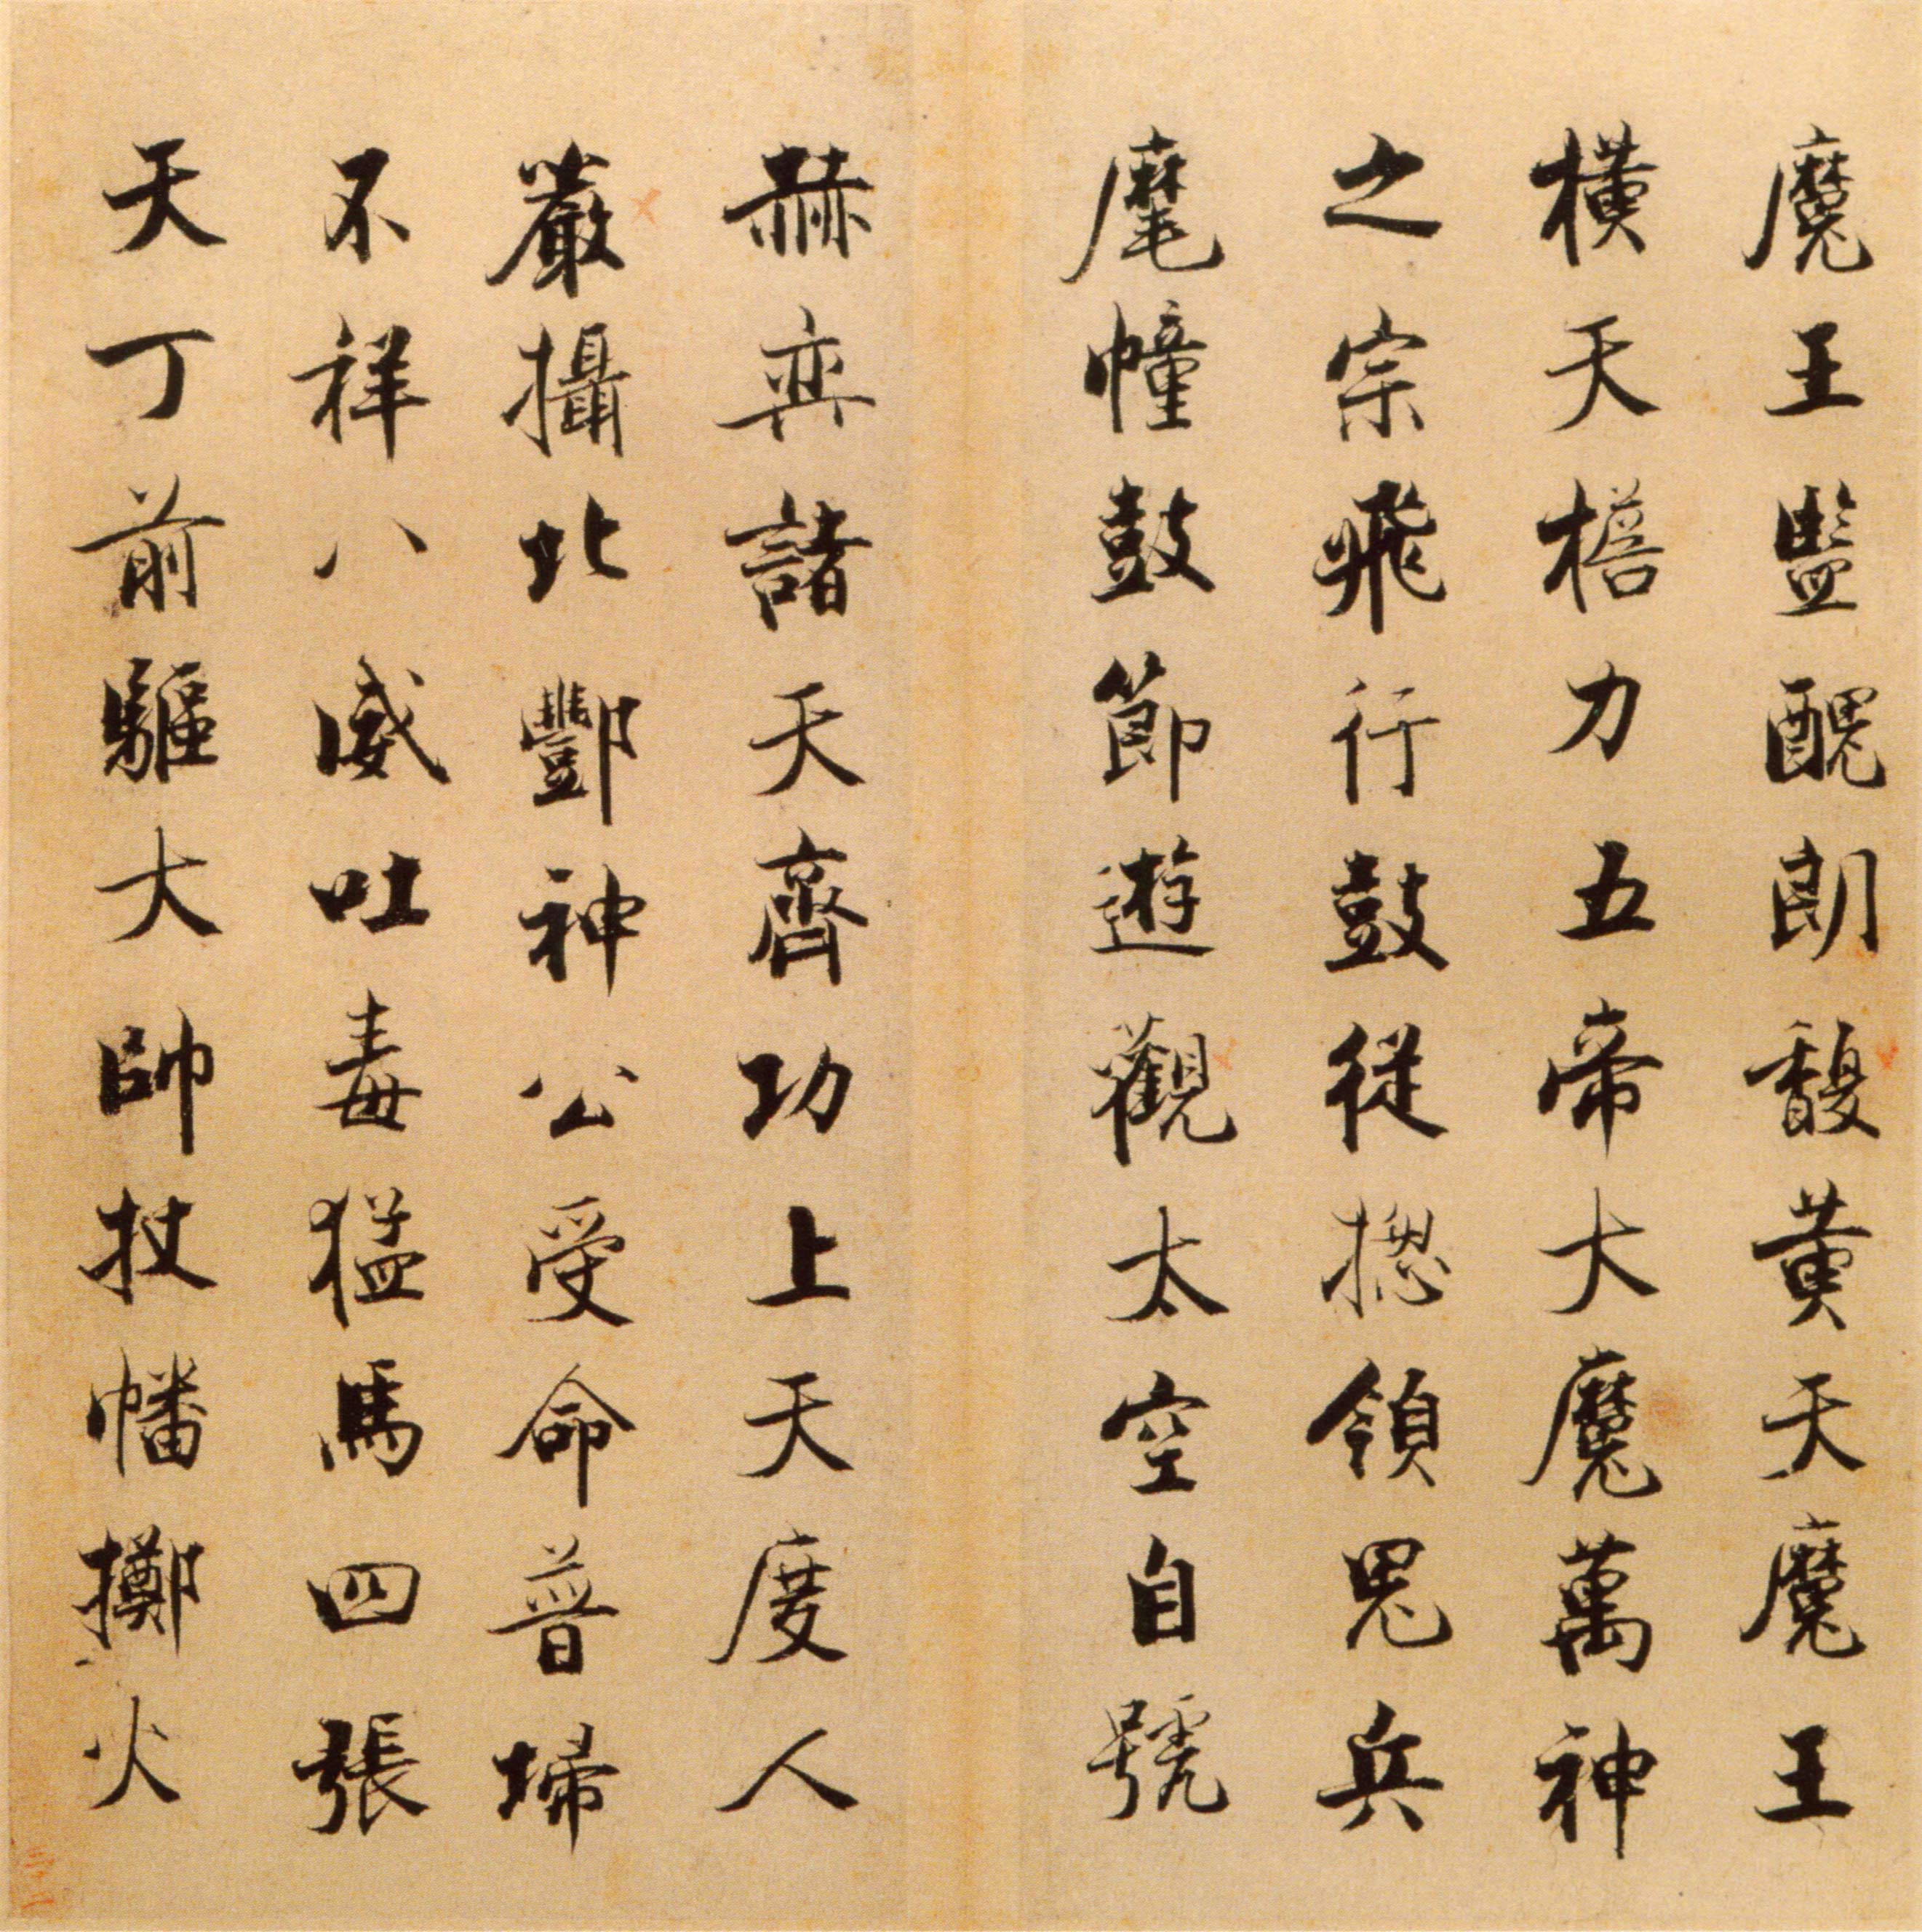 魔王監醜朗馥黃天魔王
橫天檐力五帝大魔萬神
之宗飛行鼓從揔領鬼兵
麾幢鼓節遊觀太空自號
赫弈諸天齊功上天度人
嚴攝北酆神公受命普掃
不祥八威吐毒猛馬四張
天丁前驅大帥杖幡擲火